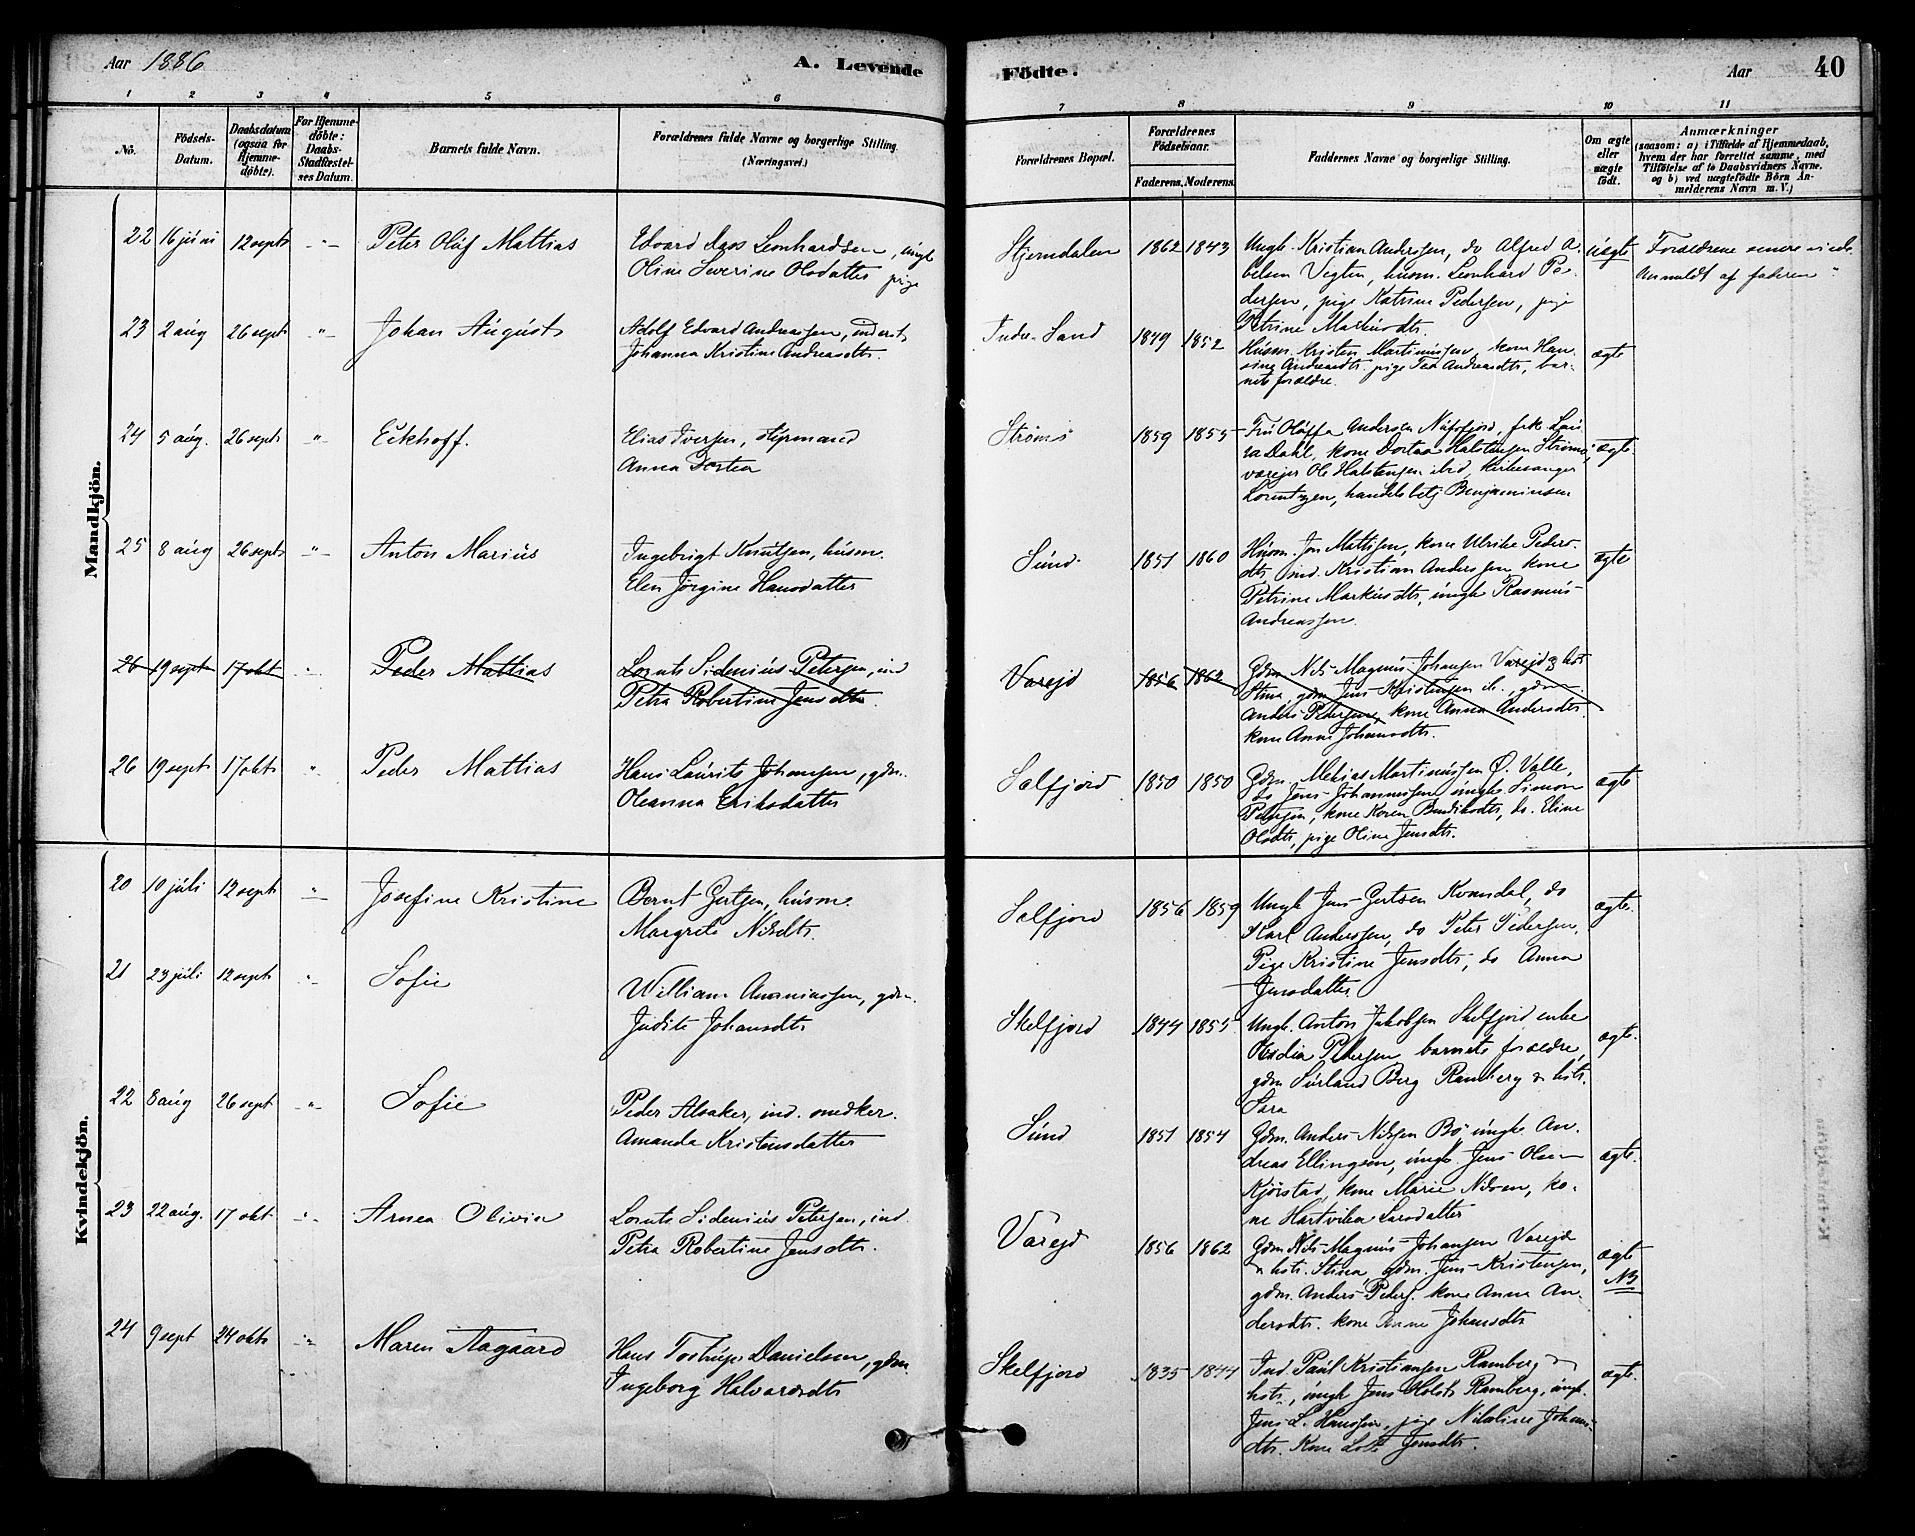 Aar 1886
A. Levende
Födte.
Aar
40
1 2 3 4 5 6 7 8 9 10 11
No.
Födsels-
Datum.
Daabsdatum
(ogsaa för
Hjemme-
döbte).
For Hjemme-
döbte:
Daabs-
Stadfæstel-
ses Datum.
Barnets fulde Navn.
Forældrenes fulde Navne og borgerlige Stilling.
(Næringsvei.)
Forældrenes Bopæl.
Forældrenes
Födselsaar.
Faderens. Moderens.
Faddernes Navne og borgerlige Stilling.
Om ægte
eller
uægte
födt.
Anmærkninger
(saasom: a) i Tilfælde af Hjemmedaab,
hvem der har forrettet samme, med
Tilföielse af to Daabsvidners Navne.
og b) ved uægtefödte Börn An-
melderens Navn m. V.)
Mandkjön.
22 16 juni 12 sept -"- Peter Oluf Mattias
Edvard Daas Leonhardsen, ungk
Oline Severine Olsdatter pige
Stjerndalen 1862 1843
Ungk. Kristian Anderssen, do Alfred A-
belsen Vegten, husm. Leonhard Pe-
dersen, pige Katrine Pedersen, pige
Petrine Markusdtr.
uægte
Forældrene senere viede
Anmeldt af faderen
23 2 aug 26 sept -"- Johan August
Adolf Edvard Andreassen, inderst
Johanna Kristine Andreasdtr.
Indre-Sand 1849 1852
Husm. Kristen Martinussen, kone Han-
sine Andreasdtr. pige Tea Andreasdtr, bar-
nets forældre.
ægte
24 5 aug. 26 sept -"- Eckhoff.
Elias Iversen, styrmand
Anna Dortea
Strömö 1859 1855
Fru Oluffa Andersen Nufsfjord, frk Lau-
ra Dahl, kone Dortea Halstensen Strömö,
værejer Ole Halstensen ibid, kirkesanger
Lorentzen, handelsbetj Benjaminsen
ægte.
25 8 aug 26 sept -"- Anton Marius
Ingebrigt Knutsen, husm.
Elen Jörgine Hansdatter
Sund. 1851 1860
Husm. Jon Mattisen, kone Ulrike Peders-
dtr, ind. Kristian Anderssen kone
Petrine Markusdtr, ungk Rasmus
Andreassen.
ægte
26 19 sept 17 okt Peder Mattias
Lornts Sidenius Petersen, ind
Petra Robertine Jensdtr.
Vareid 1856 1862
Gdm. Nils Magnus Johansen Vareid og hst
Stina, gdm Jens Kristensen ib., gdm.
Anders Pedersen, kone Anna Andersdtr.
kone Anne Johansdtr.
26 19 sept 17 okt " Peder Mattias
Hans Laurits Johansen, gdm.
Oleanna Eriksdatter
Selfjord 1850 1850
Gdm. Mekias Martinussen Ø. Valle,
do Jens Johannessen ungk Simon
Petersen, kone Karen Bendiksdtr, do. Eline
Olsdtr, pige Oline Jensdtr.
ægte
Kvindekjön.
20 10 juli 12 sept -"- Josefine Kristine
Bernt Gertsen, husm.
Margrete Nilsdtr.
Selfjord 1856 1859
Ungk Jens Gertsen Kvandal, do
Karl Anderssen, do Peter Pedersen,
Pige Kristine Jensdtr, do Anna
Jensdatter.
ægte.
21 23 juli 12 sept -"- Sofie
William Ananiassen, gdm.
Judite Johansdtr
Skelfjord 1844 1855
Ungk. Anton Jakobsen Skelfjord enke
Pedersen, barnets forældre,
gdm Surland Berg Ramberg & hst.
Sara
ægte.
22 8 aug 26 sept -"- Sofie
Peder Alsaker, ind. snedker.
Amanda Kristensdatter
Sund 1851 1854
Gdm. Anders Nilsen Bö, ungk. An-
dreas Ellingsen, ungk. Jens Olsen
Kjörstad, kone Marie Nilsen, ko-
ne Hartvika Larsdatter
ægte.
23 22 aug. 17 okt. -"- Arnea Olivia
Lornts Sidenius Petersen, ind.
Petra Robertine Jensdtr.
Vareid 1856 1862
Gdm Nils Magnus Johansen Vareid
& hst. Stina, gdm. Jens Kristensen,
gdm. Anders Peders. kone Anna An-
dersdtr. kone Anne Johansdtr
ægte
NB
24 9 sept 24 okt -"- Maren Aagaard
Hans Tostrup Danielsen, gdm
Ingeborg Halvarsdtr
Skelfjord 1835 1844
Ind. Paul Kristiansen Ramberg &
hst., ungk Jens Holst Ramberg, ungk.
Jens L. Hanssen, pige Nikoline Johans-
dtr. Kone Jensdtr.
ægte.